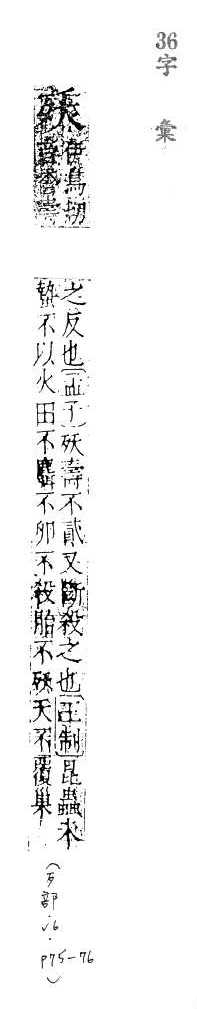 36字 彙
殀
伊鳥切
音杳壽
之反也孟子殀壽不貳又斷殺之也王制昆蟲未
蟄不以火田不麛不卵不殺胎不殀夭不覆巢
(歹部.
p75-76)